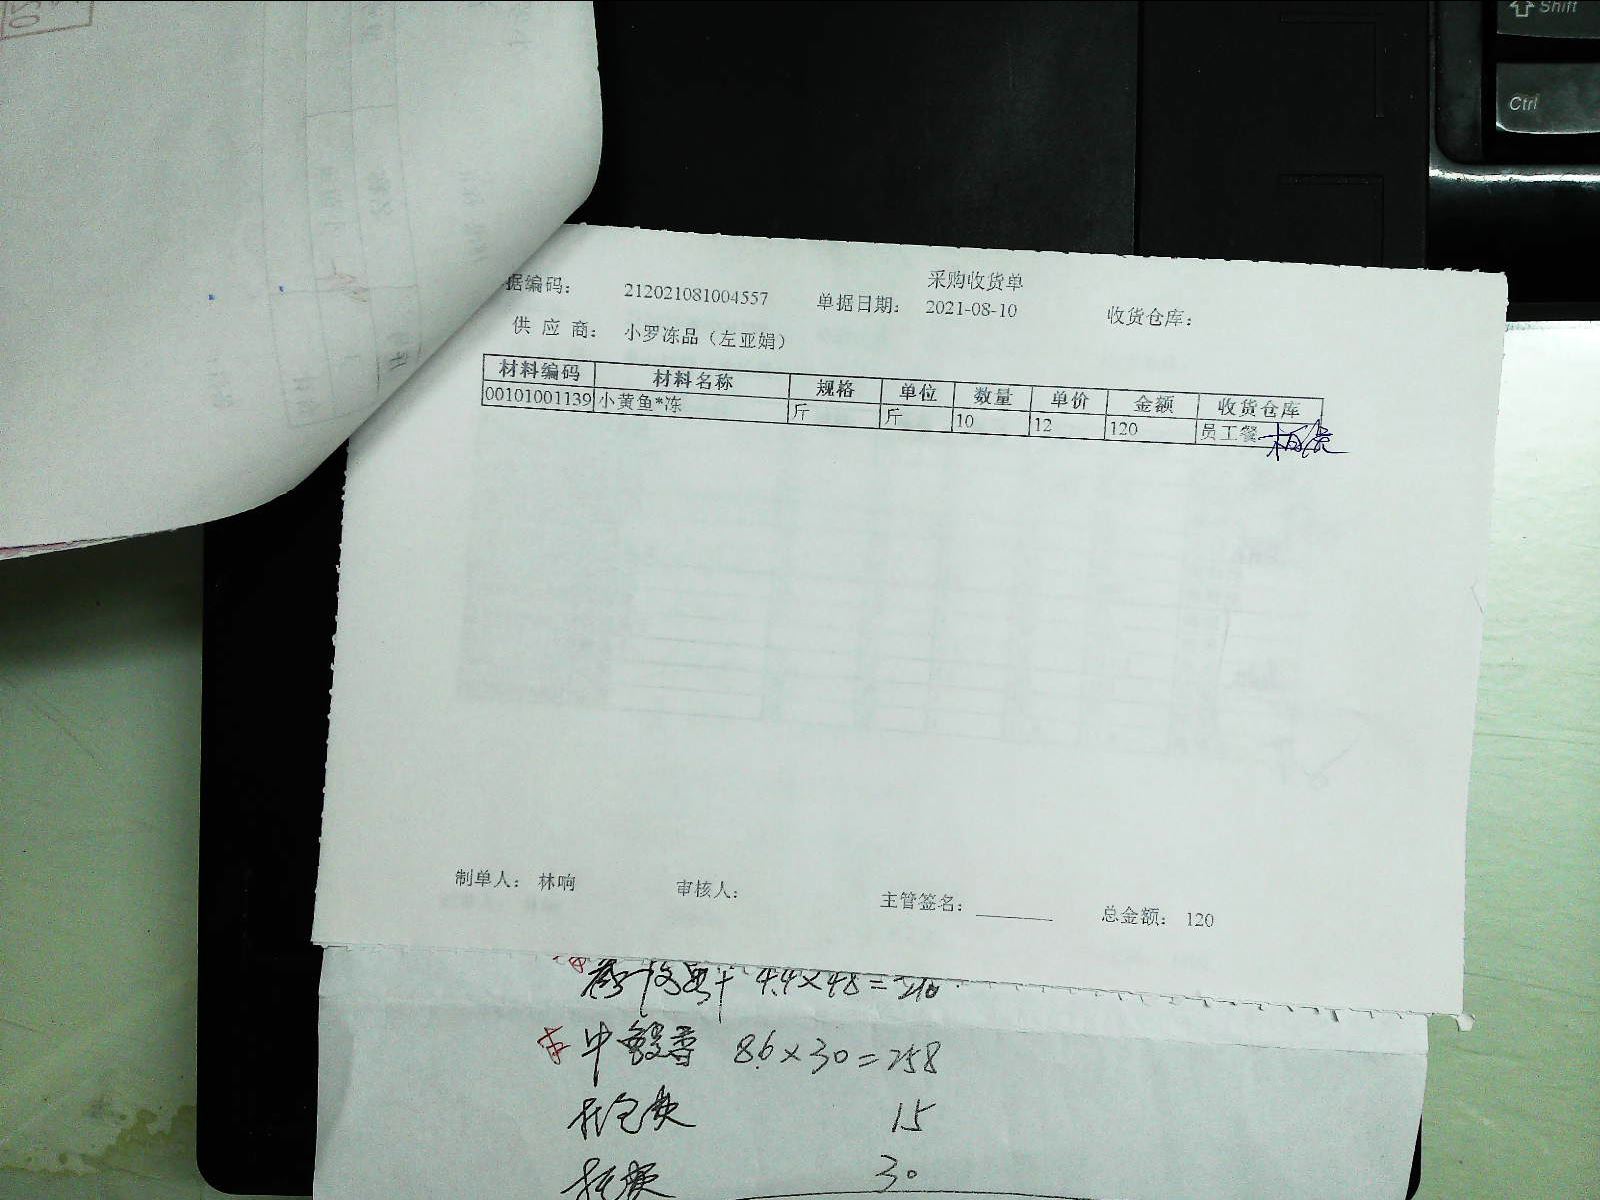 Shift
Ctrl
采购收货单
据编码： 212021081004557 单据日期： 2021-08-10 收货仓库：
供 应 商： 小罗冻品（左亚娟）
材料编码 材料名称 规格 单位 数量 单价 金额 收货仓库
00101001139 小黄鱼*冻 斤 斤 10 12 120 员工餐
制单人： 林响 审核人： 主管签名： 总金额： 120
4.4×48=210
中 8.6×30=258
打包费 15
30